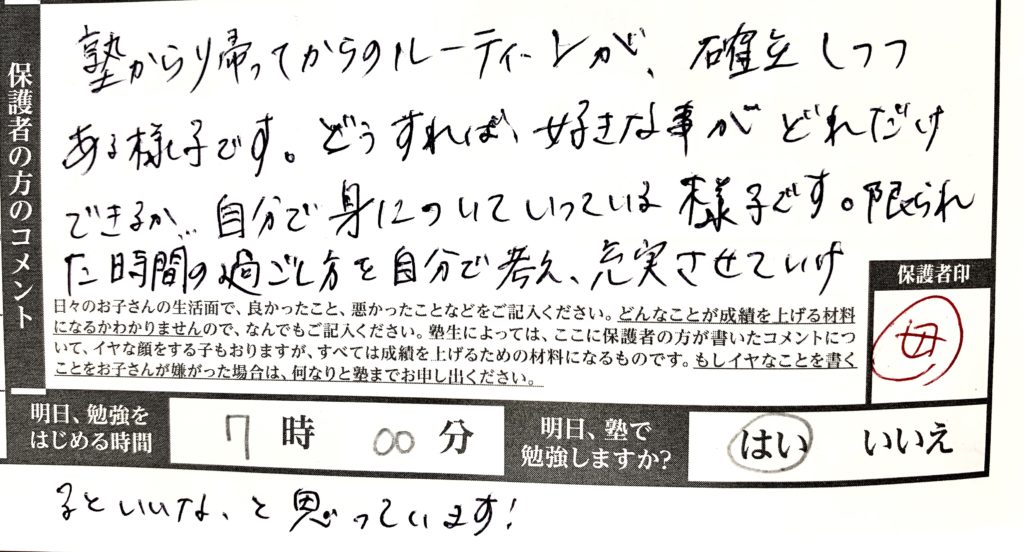 保護者の方のコメント
塾から帰ってからのルーティーンが、確立しつつ
ある様子です。どうすれば、好きな事がどれだけ
できるか…自分で身についていっている様子です。限られ
た時間の過ごし方を自分で考え、充実させていけ
日々のお子さんの生活面で、良かったこと、悪かったことなどをご記入ください。どんなことが成績を上げる材料
になるかわかりませんので、なんでもご記入ください。塾生によっては、ここに保護者の方が書いたコメントにつ
いて、イヤな顔をする子もおりますが、すべては成績を上げるための材料になるものです。もしイヤなことを書く
ことをお子さんが嫌がった場合は、何なりと塾までお申し出ください。
保護者印
母
明日、勉強を
はじめる時間
7時00分
明日、塾で
勉強しますか?
はい いいえ
るといいな、と思っています!